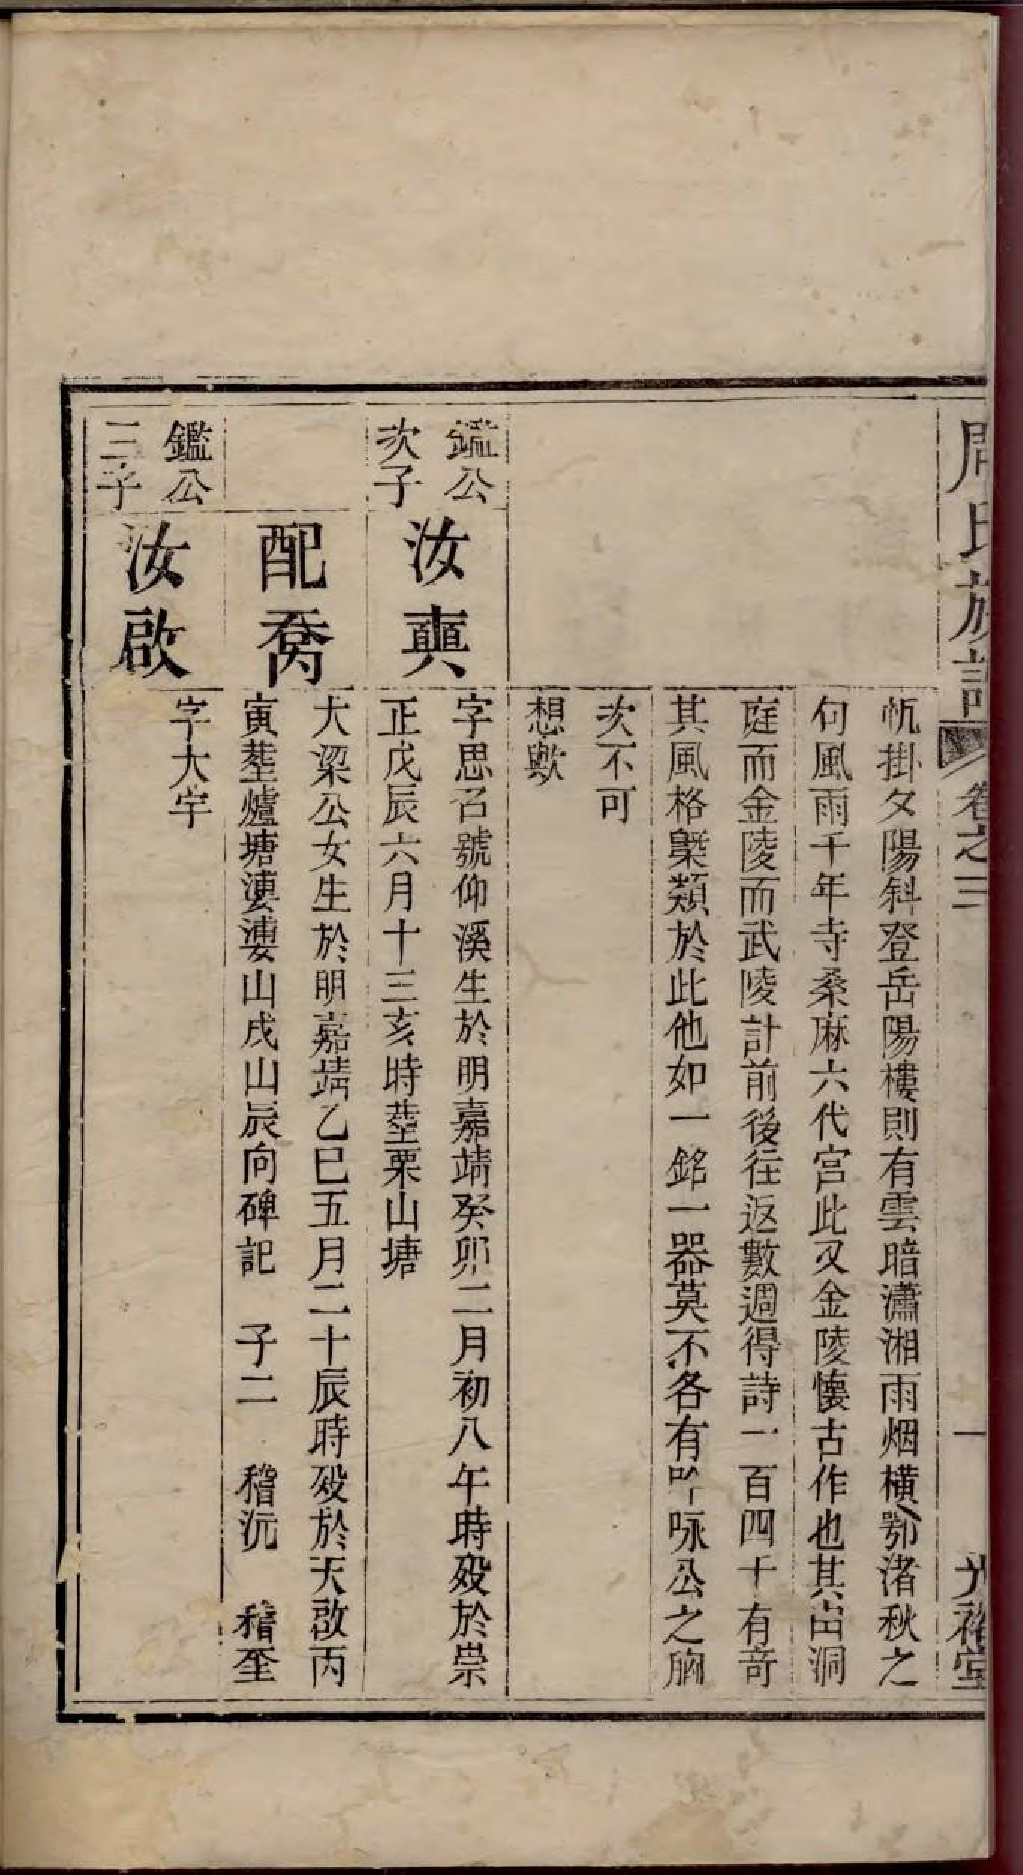 周氏族譜 卷之三 一 光裕堂
帆掛夕陽斜登岳陽樓則有雲暗瀟湘雨烟橫鄂渚秋之
句風雨千年寺桑麻六代宮此又金陵懷古作也其由洞
庭而金陵而武陵計前後往返數週得詩一百四十有奇
其風格槩類於此他如一銘一器莫不各有吟咏公之胸
次不可
想歟
鑑公
次子
汝奭
字思召號仰溪生於明嘉靖癸卯二月初八午時歿於崇
正戊辰六月十三亥時塟栗山塘
配喬
大梁公女生於明嘉靖乙巳五月二十辰時歿於天啟丙
寅塟爐塘漊漊山戌山辰向碑記 子二 稽沅 稽荃
鑑公
三子
汝啟
字大宇